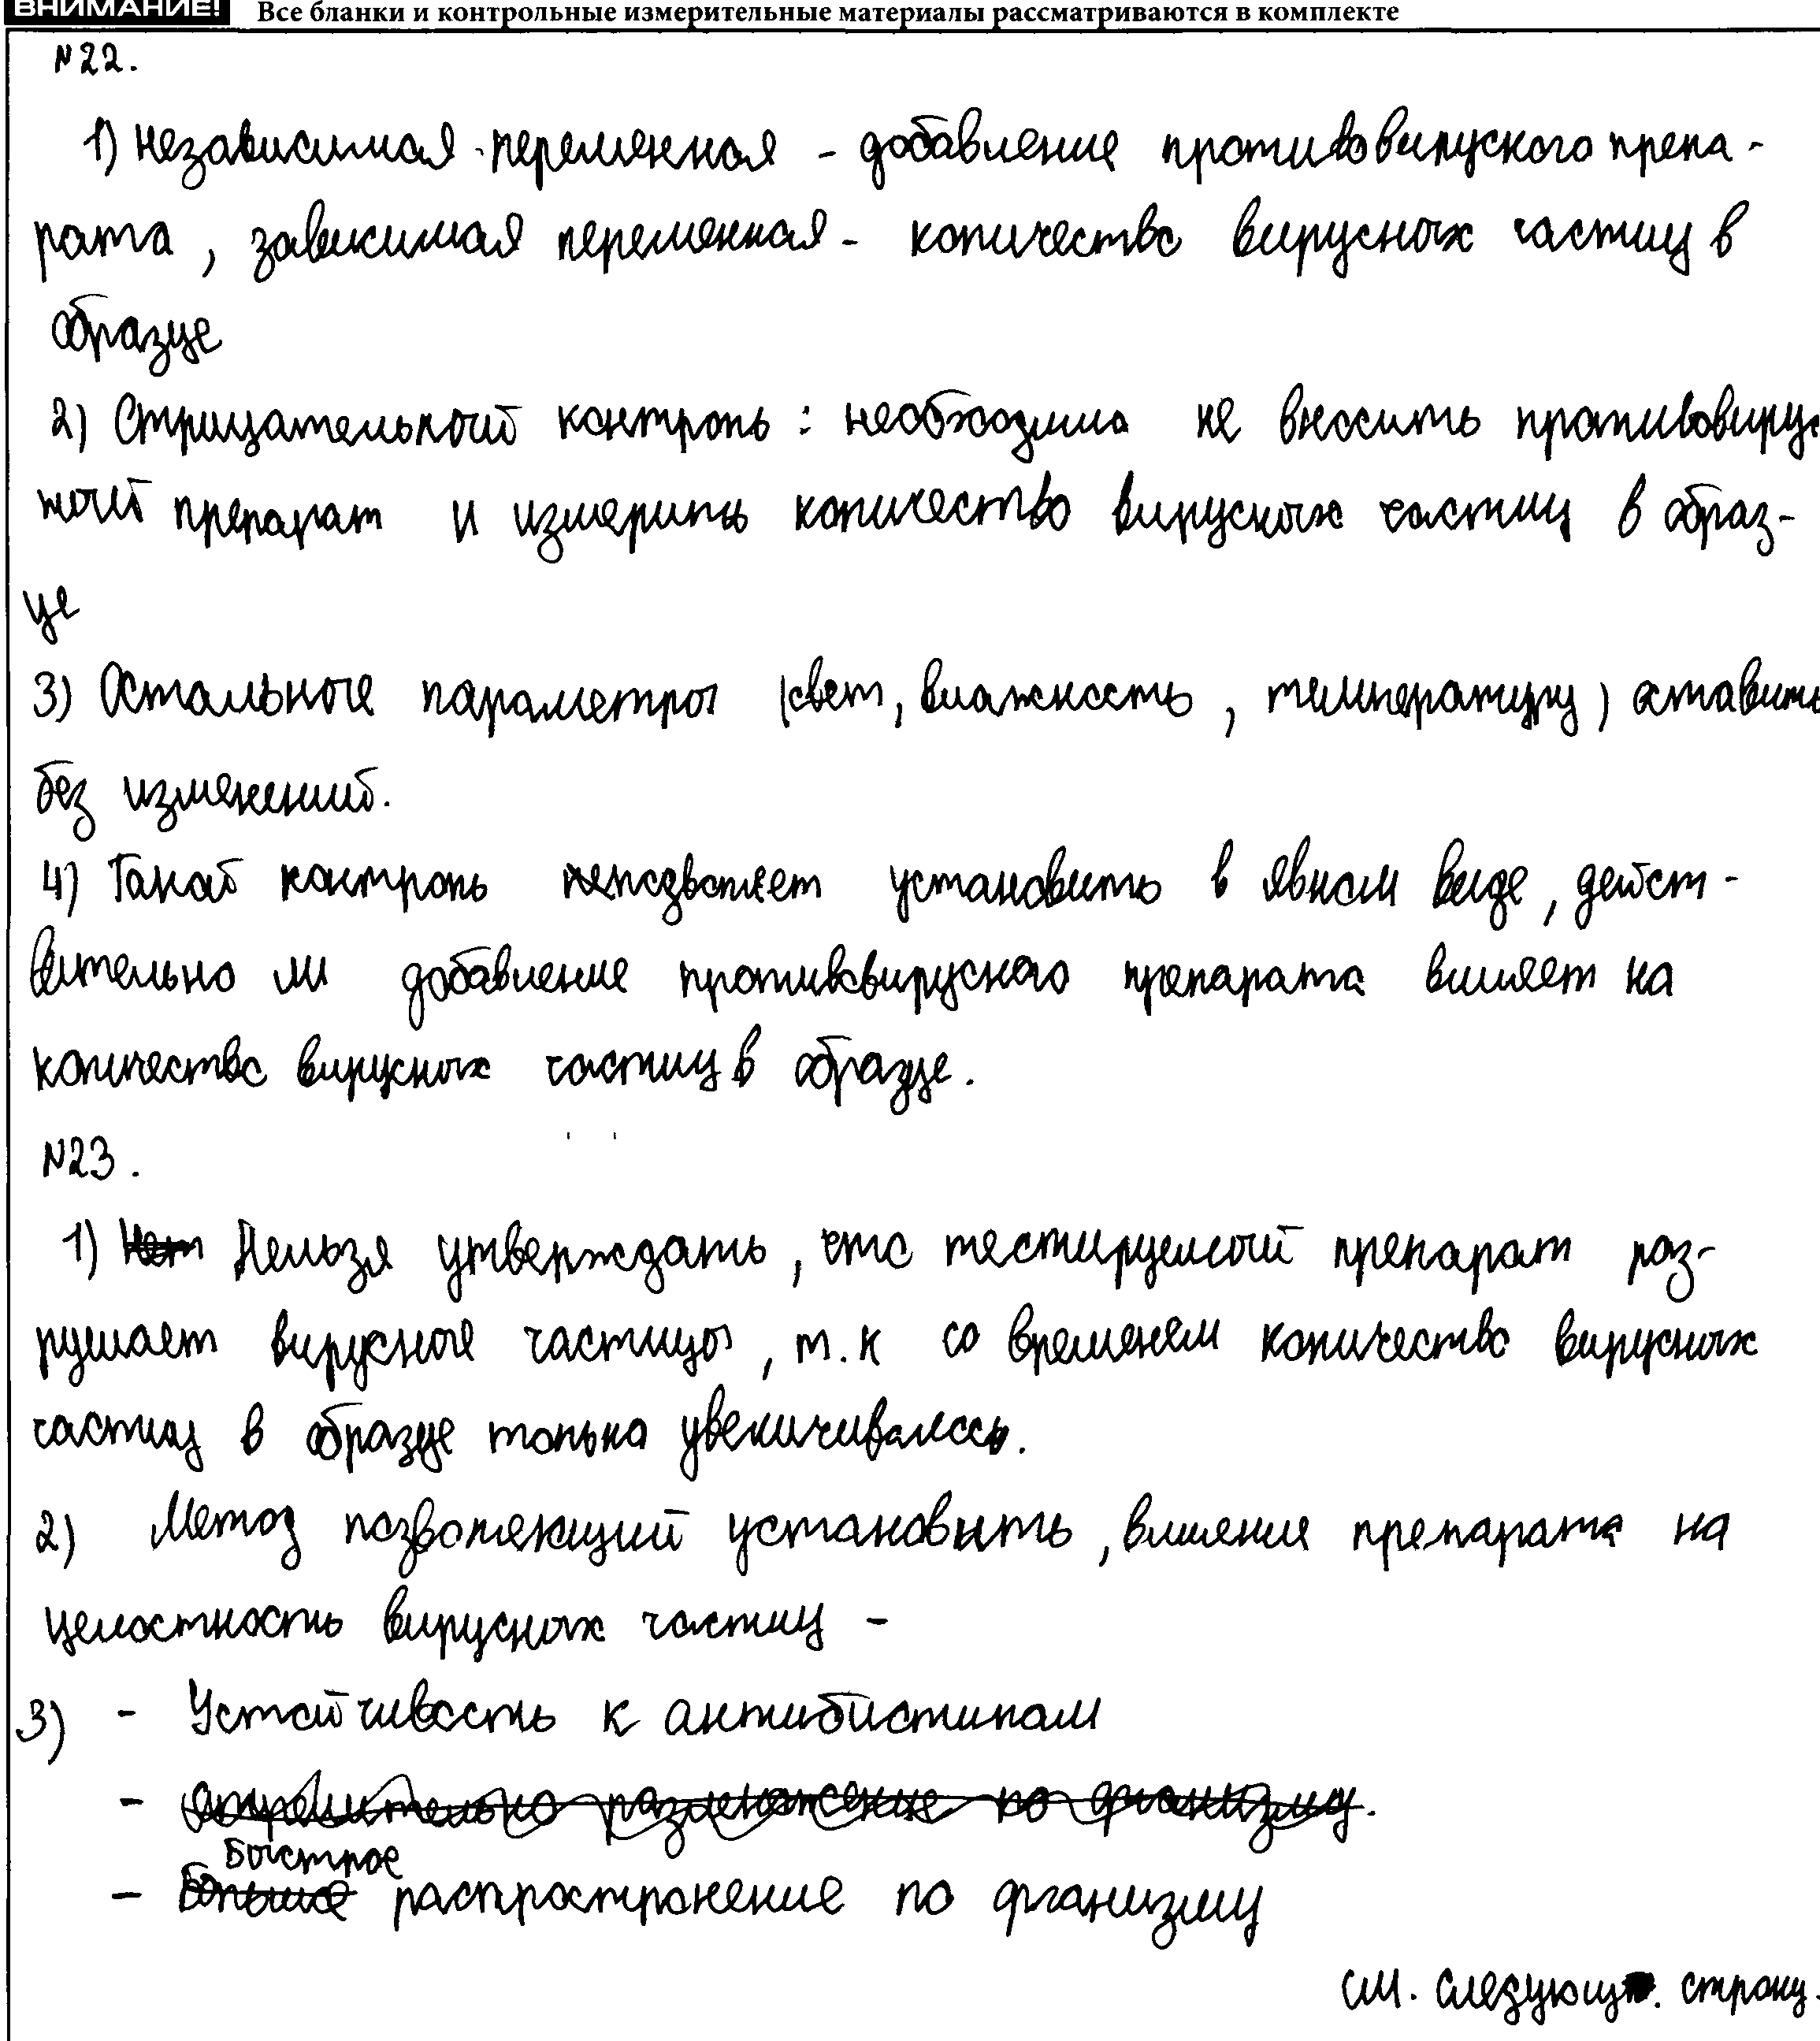 ВНИМАНИЕ! Все бланки и контрольные измерительные материалы рассматриваются в комплекте
№22.
1) Независимая переменная - добавление противовирусного препа-
рата, зависимая переменная - количество вирусных частиц в
образце
2) Отрицательный контроль: необходимо не вносить противовирус
ный препарат и измерить количество вирусных частиц в образ-
це
3) Остальные параметры (свет, влажность, температуру) оставить
без изменений.
4) Такой контроль позволяет установить в явном виде, дейст-
вительно ли добавление противовирусного препарата влияет на
количество вирусных частиц в образце.
№23.
1) Нет Нельзя утверждать, что тестируемый препарат раз-
рушает вирусные частицы, т.к со временем количество вирусных
частиц в образце только увеличивалось.
2) Метод позволяющий установить, влияние препарата на
целостность вирусных частиц -
3) - Устойчивость к антибиотикам
- стремительно размножение по организму.
Быстрое
- Больше распространение по организму
см. следующ. страну.